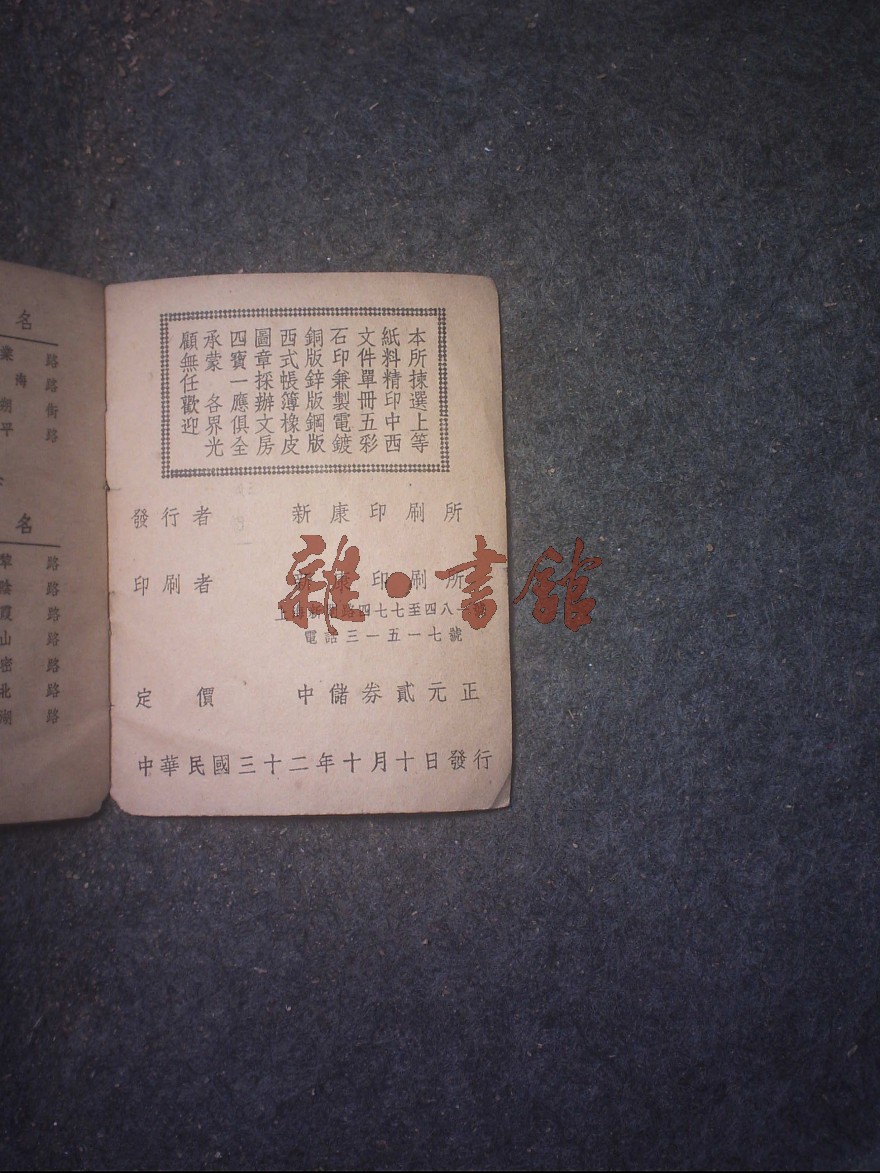 本所揀選上等
紙料精印中西
文件單冊五彩
石印兼製電鍍
銅版鋅版鋼版
西式帳簿橡皮
圖章採辦文房
四寶一應俱全
承蒙 各界光
顧無任歡迎
發行者 新康印刷所
印刷者 新康印刷所
上海浙江路四七七至四八一號
電話三一五一七號
定價 中儲券貳元正
中華民國三十二年十月十日發行
雜·書館
名
路
海 路
湖 街
平 路
名
黎 路
路
霞 路
山 路
密 路
北 路
湖 路